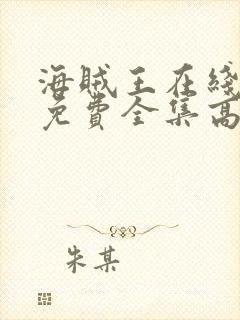 海贼王在綫
免費全集高
朱某